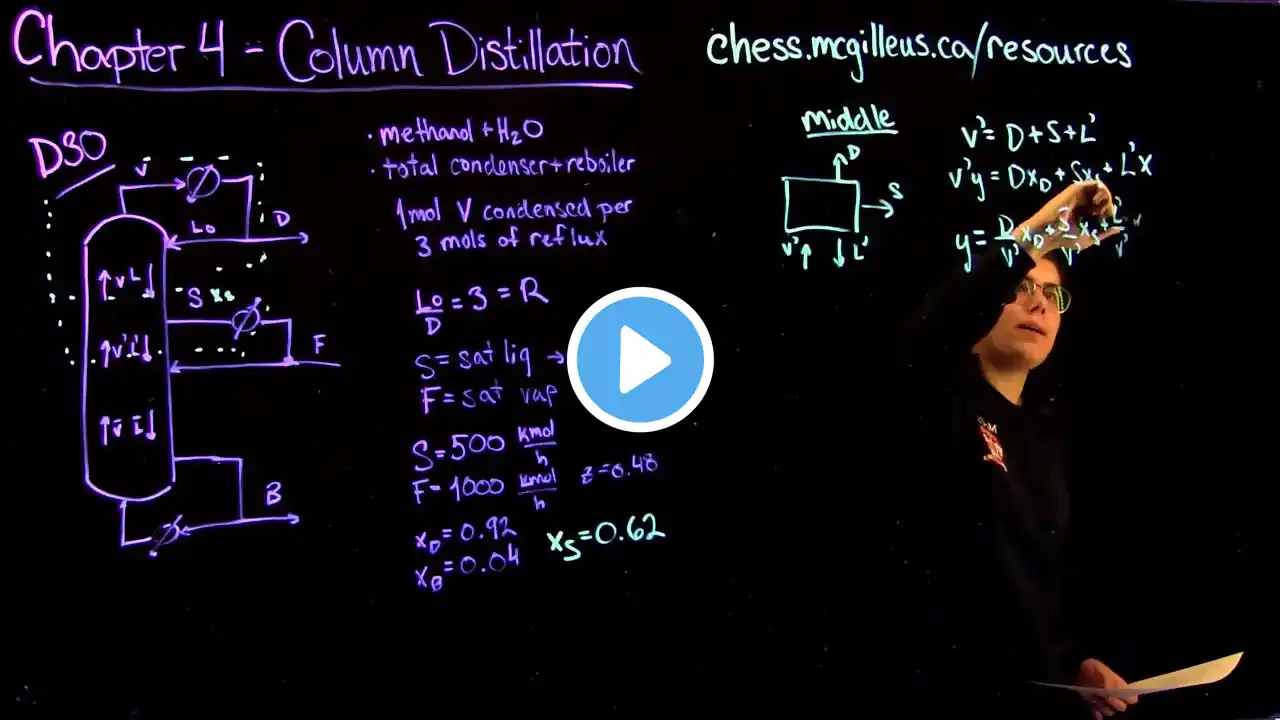 Chapter 4 - Column Distillation
chess.mcgilleus.ca/resources
D30
V
Lo
D
V L
S xs
V' L'
F
V̄ L̄
B
· methanol + H2O
· total condenser + reboiler
1 mol V condensed per
3 mols of reflux
Lo/D = 3 = R
S = sat liq →
F = sat vap
S = 500 kmol/h
F = 1000 kmol/h z = 0.48
xD = 0.92
xB = 0.04
xS = 0.62
middle
D
S
V' L'
V' = D + S + L'
V'y = DxD + Sxs + L'x
y = D/V' xD + S/V' xs + L'/V'